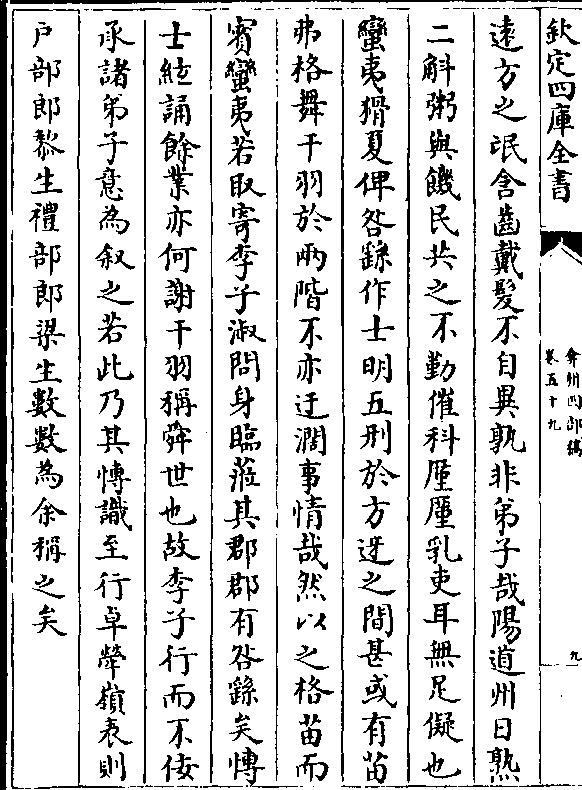 欽定四庫全書
弇州四部稿
卷五十九
九
逺方之氓含齒戴髮不自異孰非弟子哉陽道州日熟
二斛粥與饑民共之不勤催科厪厪乳吏耳無足儗也
蠻夷猾夏俾咎繇作士明五刑於方逆之間甚或有苗
弗格舞干羽於兩階不亦迂濶事情哉然以之格苗而
賓蠻夷若取寄李子淑問身臨蒞其郡郡有咎繇矣愽
士絃誦餘業亦何謝干羽稱舜世也故李子行而不佞
承諸弟子意為叙之若此乃其愽識至行卓犖嶺表則
户部郎黎生禮部郎梁生數數為余稱之矣